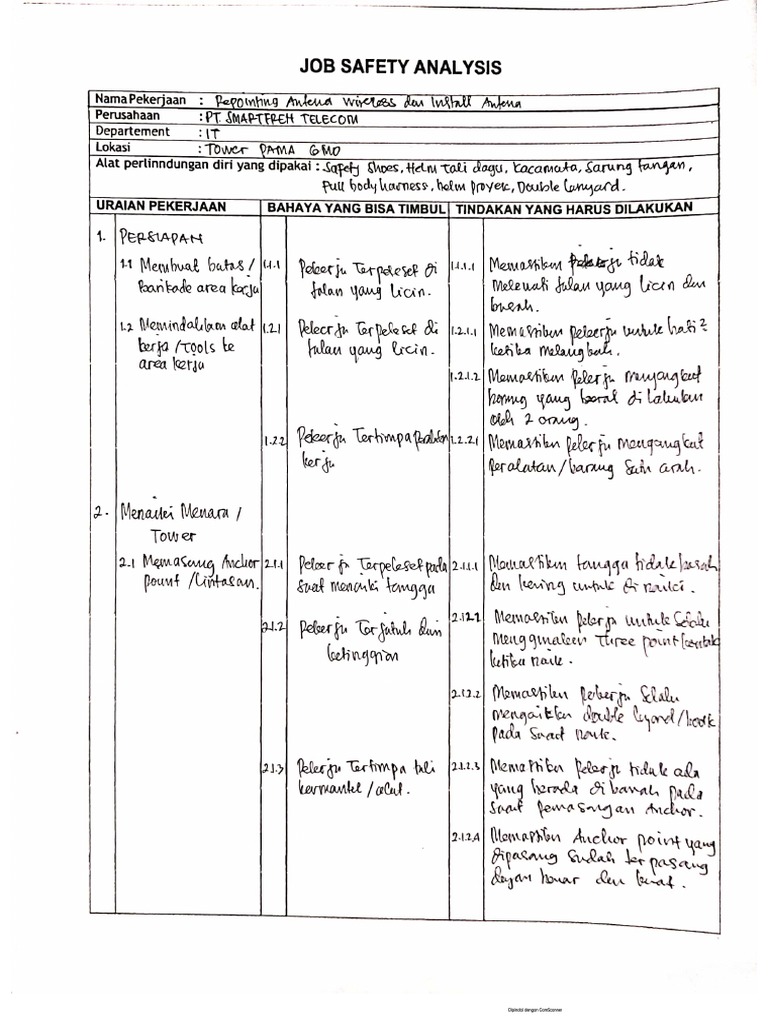 JOB SAFETY ANALYSIS
Nama Pekerjaan : Repointing Antena Wireless dan Install Antena
Perusahaan : PT. SMARTFREH TELECOM
Departement : IT
Lokasi : Tower PAMA GMO
Alat perlinndungan diri yang dipakai : Safety Shoes, Helm Tali dagu, Kacamata, Sarung tangan,
Full body harness, helm Proyek, Double Lanyard.
URAIAN PEKERJAAN BAHAYA YANG BISA TIMBUL TINDAKAN YANG HARUS DILAKUKAN
1. PERSIAPAN
1.1 Membuat batas / 1.1.1 Pekerja Terpeleset di 1.1.1.1 Memastikan pekerja tidak
barikade area kerja jalan yang licin. melewati jalan yang licin dan
basah.
1.2 Memindahkan alat 1.2.1 Pekerja Terpeleset di 1.2.1.1 Memastikan pekerja untuk hati²
kerja / Tools ke jalan yang licin. ketika melangkah.
area kerja
1.2.1.2 Memastikan pekerja mengangkut
barang yang berat di lakukan
oleh 2 orang.
1.2.2 Pekerja Tertimpa Peralatan 1.2.2.1 Memastikan pekerja mengangkat
kerja Peralatan / barang satu arah.
2. Menaiki Menara /
Tower
2.1 Memasang Anchor 2.1.1 Pekerja Terpeleset pada 2.1.1.1 Memastikan tangga tidak basah
point / Lintasan. saat menaiki tangga dan kering untuk di naiki.
2.1.2 Pekerja Terjatuh dari 2.1.2.1 Memastikan pekerja untuk Selalu
ketinggian menggunakan Three point kontak
ketika naik.
2.1.2.2 Memastikan pekerja Selalu
mengaitkan double layard / hook
pada Saat naik.
2.1.3 Pekerja Tertimpa tali 2.1.2.3 Memastikan Pekerja tidak ada
kermantel / alat. yang berada di bawah pada
saat Pemasangan Anchor.
2.1.2.4 Memastikan Anchor point yang
dipasang Sudah terpasang
dengan benar dan kuat.
Dipindai dengan CamScanner